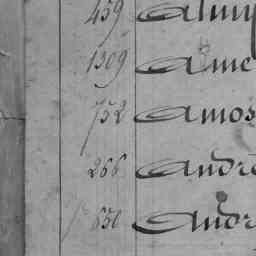 459 Alm
1309 Ame
752 Amos
266 André
650 Andr